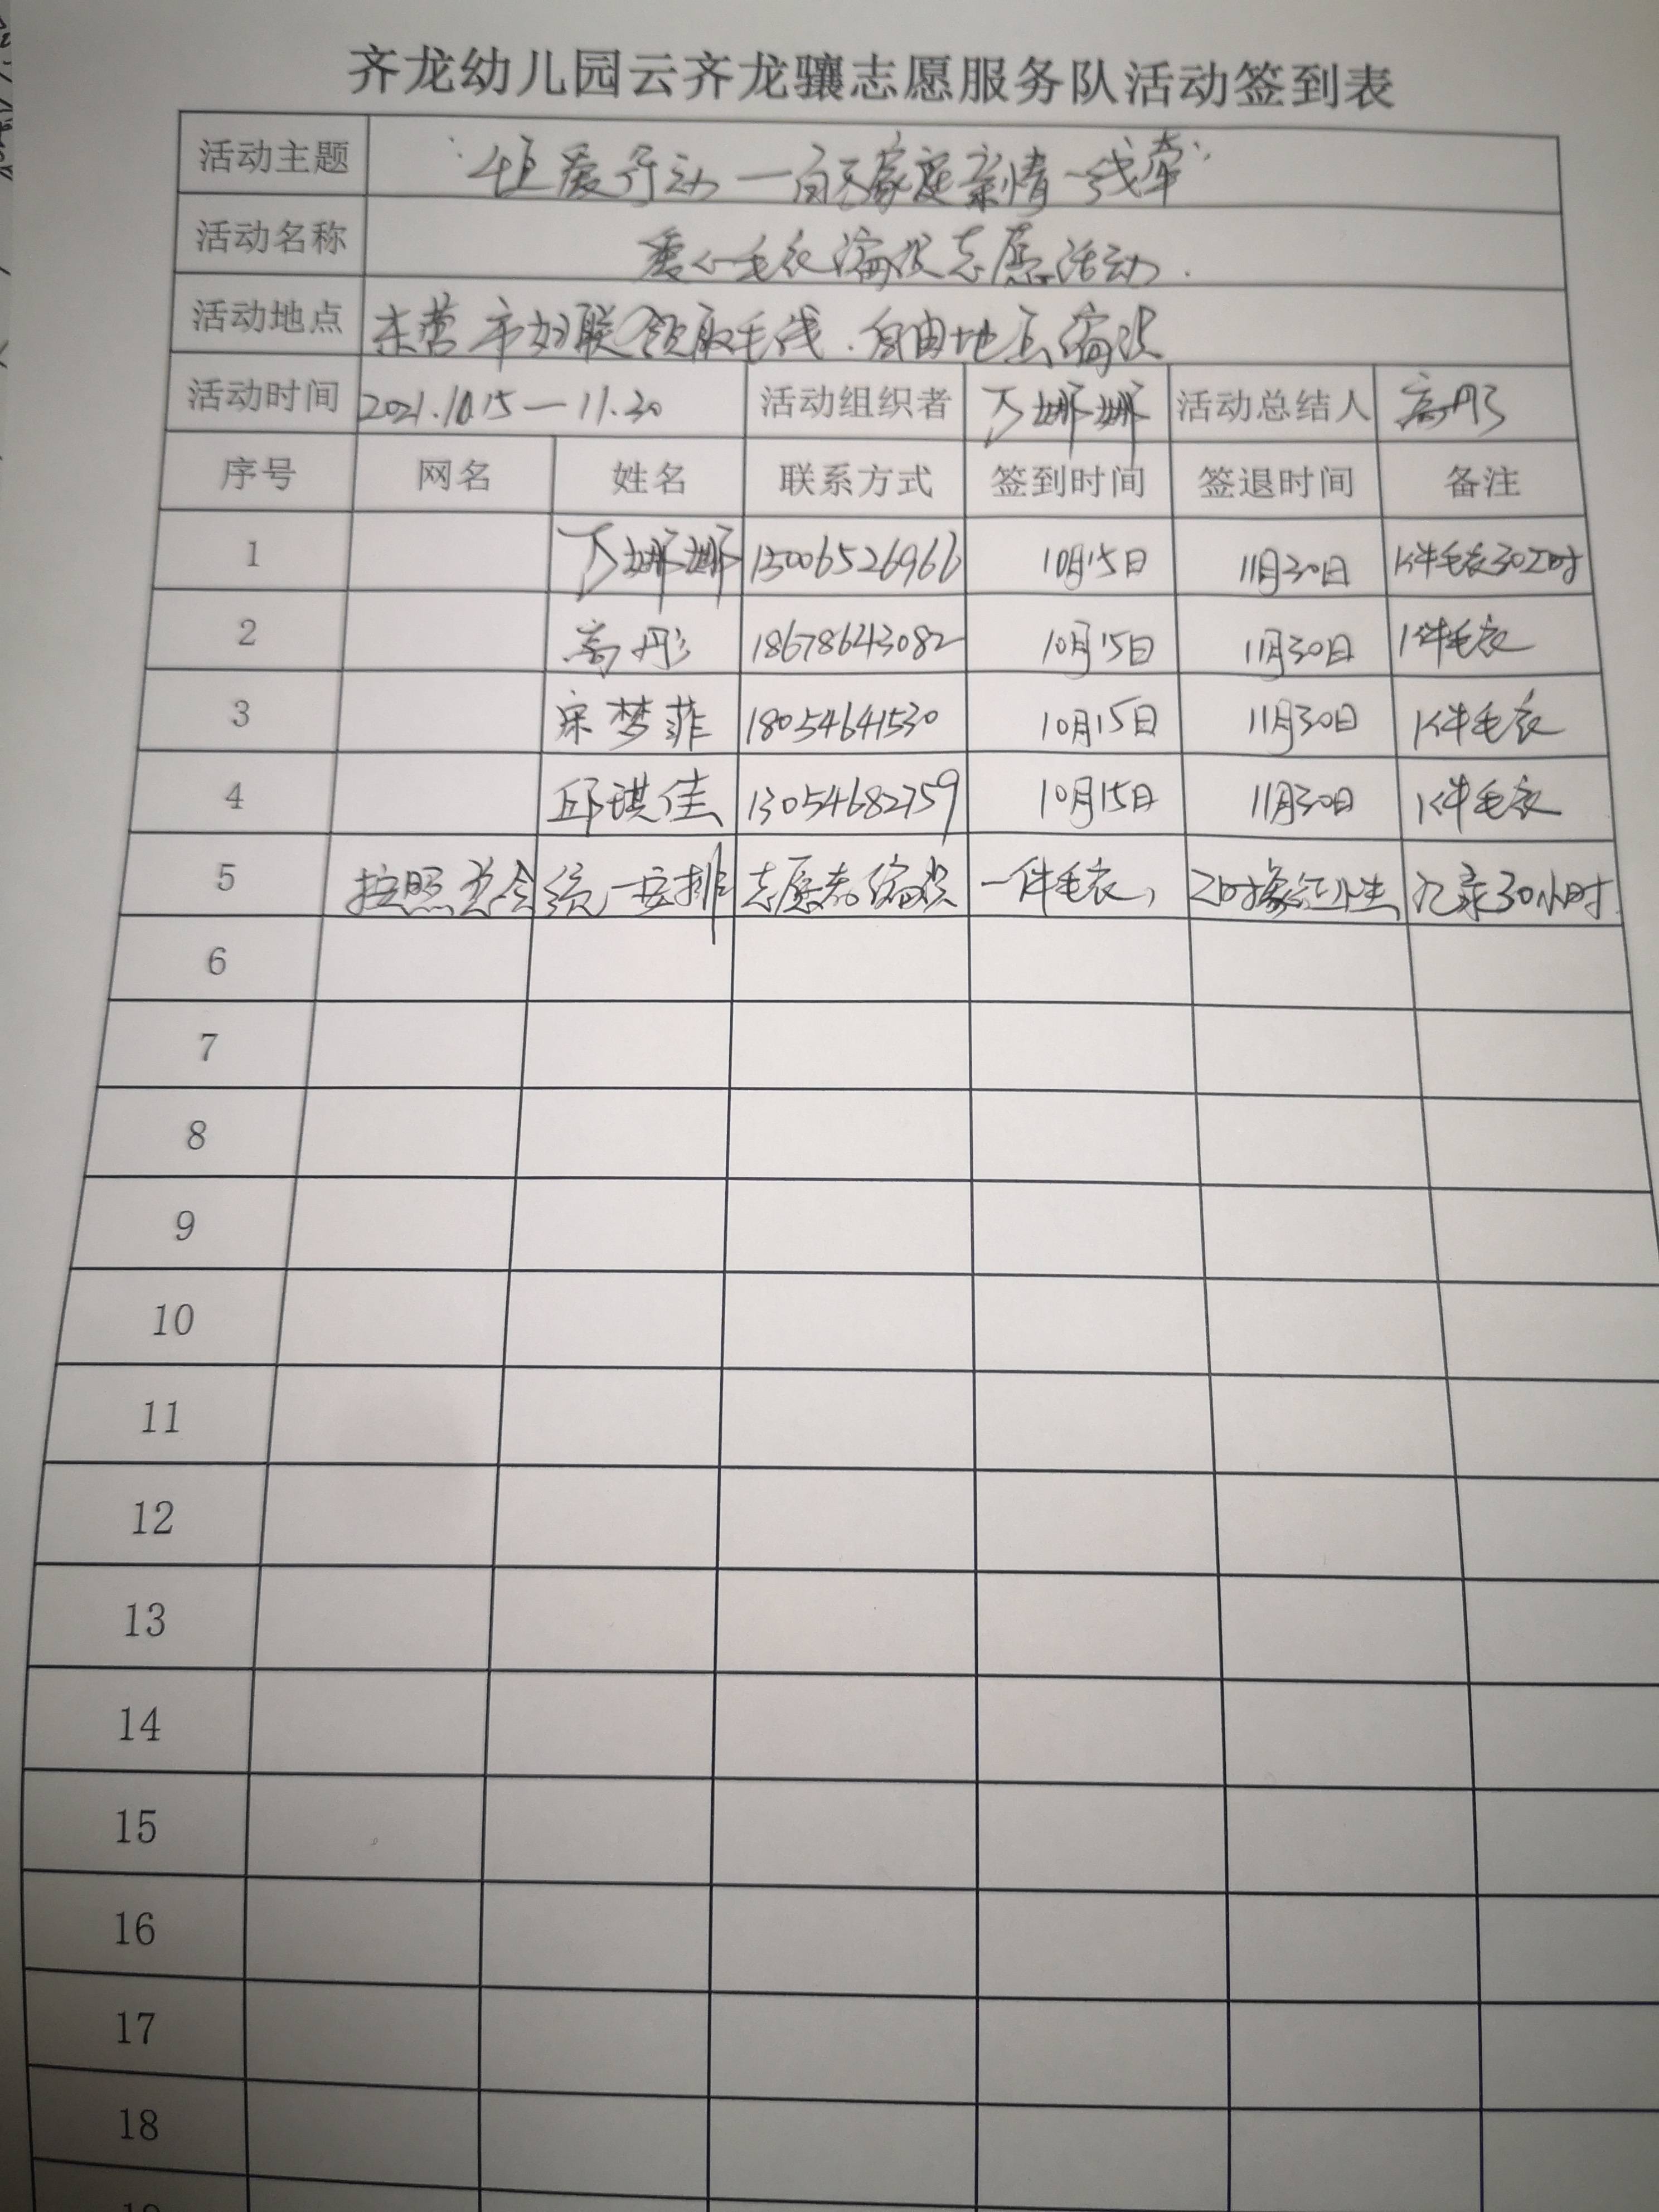 齐龙幼儿园云齐龙骧志愿服务队活动签到表
活动主题 "恒爱行动—百万家庭亲情一线牵"
活动名称 爱心毛衣编织志愿活动.
活动地点 东营市妇联领取毛线.自由地点编织
活动时间 2021.10.15—11.30 活动组织者 万娜娜 活动总结人 高彤
序号 网名 姓名 联系方式 签到时间 签退时间 备注
1 万娜娜 15006526966 10月15日 11月30日 1件毛衣30工时
2 高彤 18678643082 10月15日 11月30日 1件毛衣
3 宋梦菲 18054641530 10月15日 11月30日 1件毛衣
4 邱琪佳 13054682759 10月15日 11月30日 1件毛衣
5 按照总会统一安排志愿者编织一件毛衣, 记录30小时.
6
7
8
9
10
11
12
13
14
15
16
17
18
19